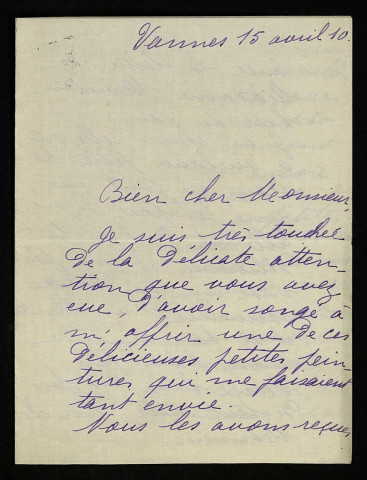 Vannes 15 avril 10.
Bien cher Monsieur,
Je suis très touchée
de la délicate atten-
tion que vous avez
eue, d'avoir songé à
m'offrir une de ces
délicieuses petites pein-
tures qui me faisaient
tant envie.
Nous les avons reçues